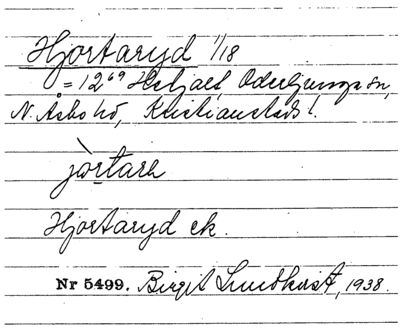 Hjortaryd 1/18
= 12⁶⁹ Hishult, Oderljunga sn,
N. Åsbo hd, Kristianstads l.
jòrtarh
Hjortaryd ek.
Nr 5499. Birgit Lundkvist, 1938.